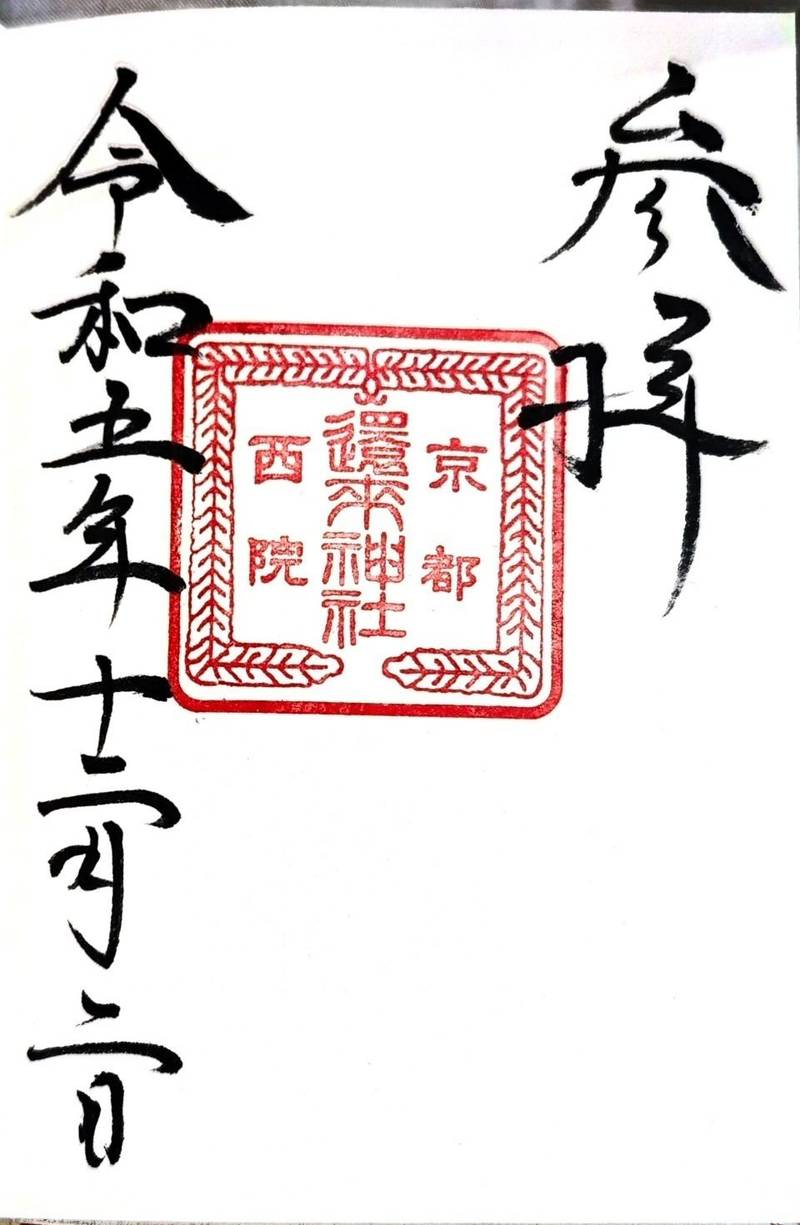 参拝
京都
還来神社
西院
令和五年十二月二日